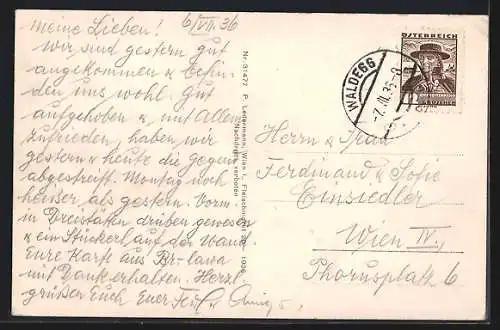 6/VII.36
Meine Lieben!
Wir sind gestern gut
angekommen & befin-
den uns wohl. Gut
aufgehoben & mit Allem
zufrieden, haben wir
gestern & heute die Gegend
abgestreift. Montag noch
heißer als gestern. Vorm.
in Dreistätten drüben gewesen
& ein Stückerl auf der Wand.
Eure Karte aus Br-lava
mit Dank erhalten. Herzl.
grüßen Euch Euer
Nr. 31472 P. Ledermann, Wien I., Fleischmarkt 20 1936
Nachdruck verboten
ÖSTERREICH
WALDEGG
Herrn & Frau
Ferdinand & Sofie
Einsiedler
Wien IV.,
Phorusplatz 6